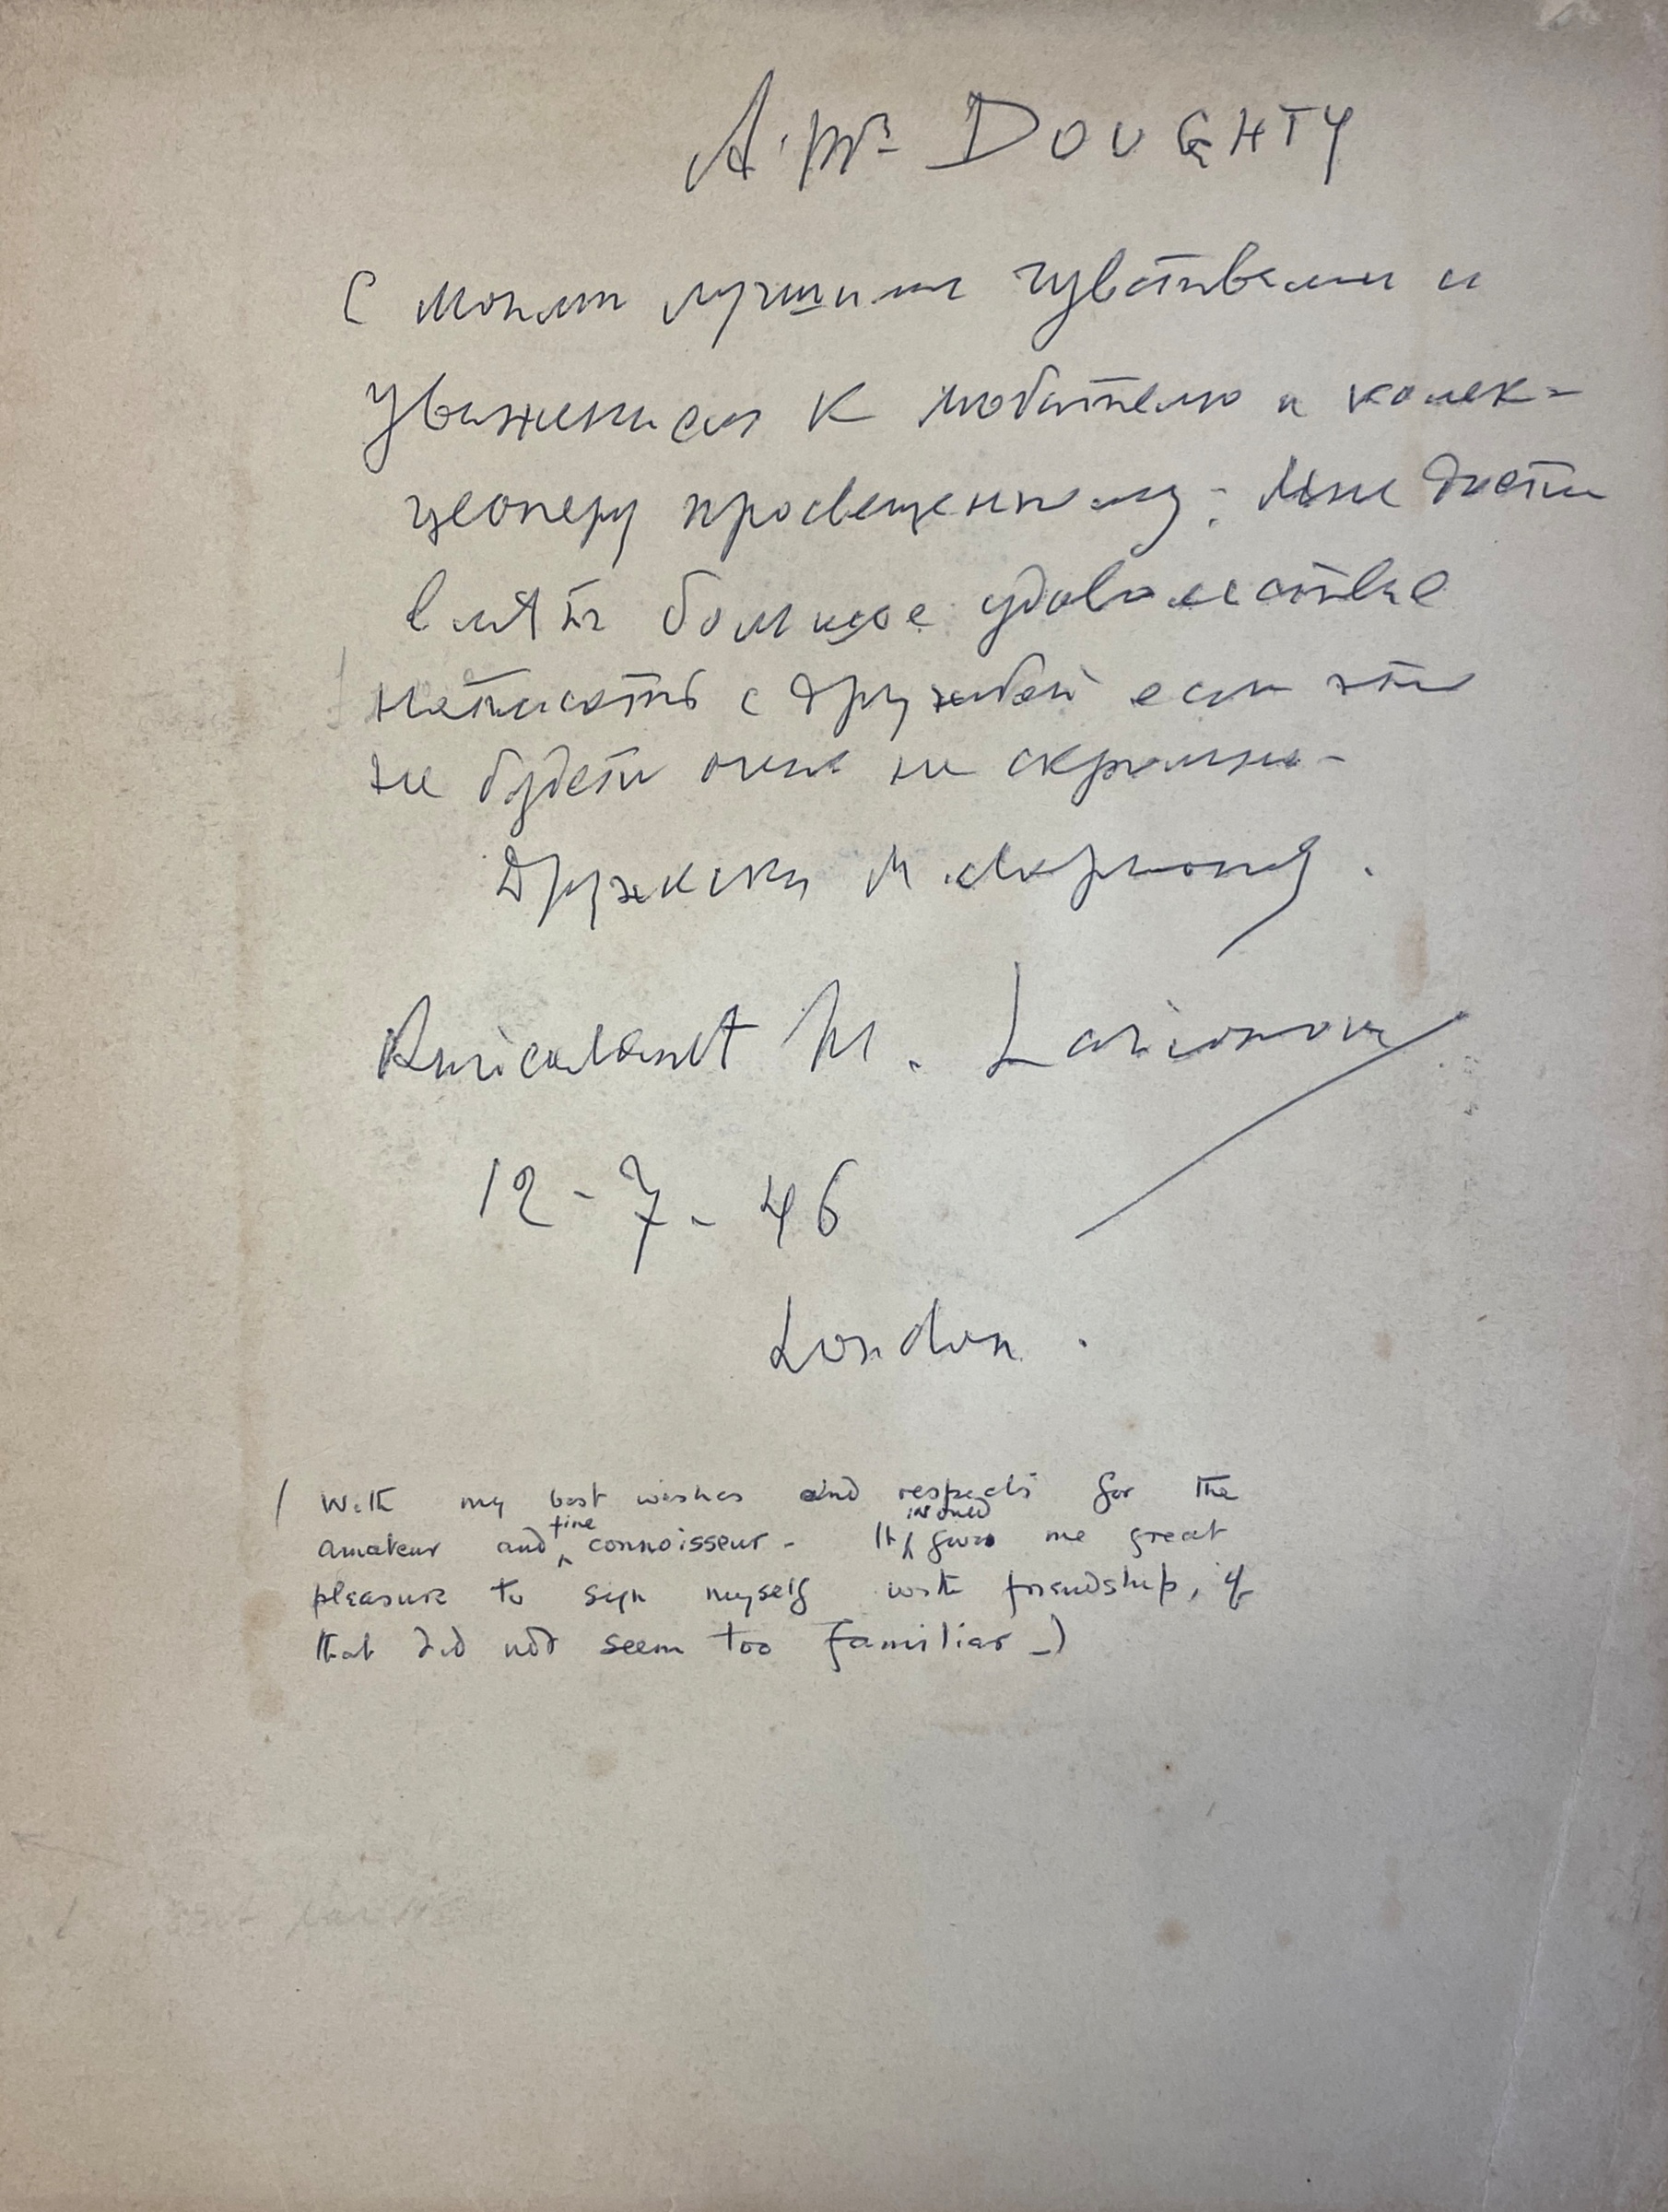 A. Mr DOUGHTY
С моими лучшими чувствами и
уважением к любителю и колек-
ционеру просвещенному. Мне доста
влять большое удовольствие
написать с дружбой если это
не будет очень не скромно -
Дружески М. Ларионов.
Amicalement M. Larionow
12 - 7 - 46
London.
( With my best wishes and respects for the
amateur and fine connoisseur - It would give me great
pleasure to sign myself with friendship, if
that did not seem too familiar -)